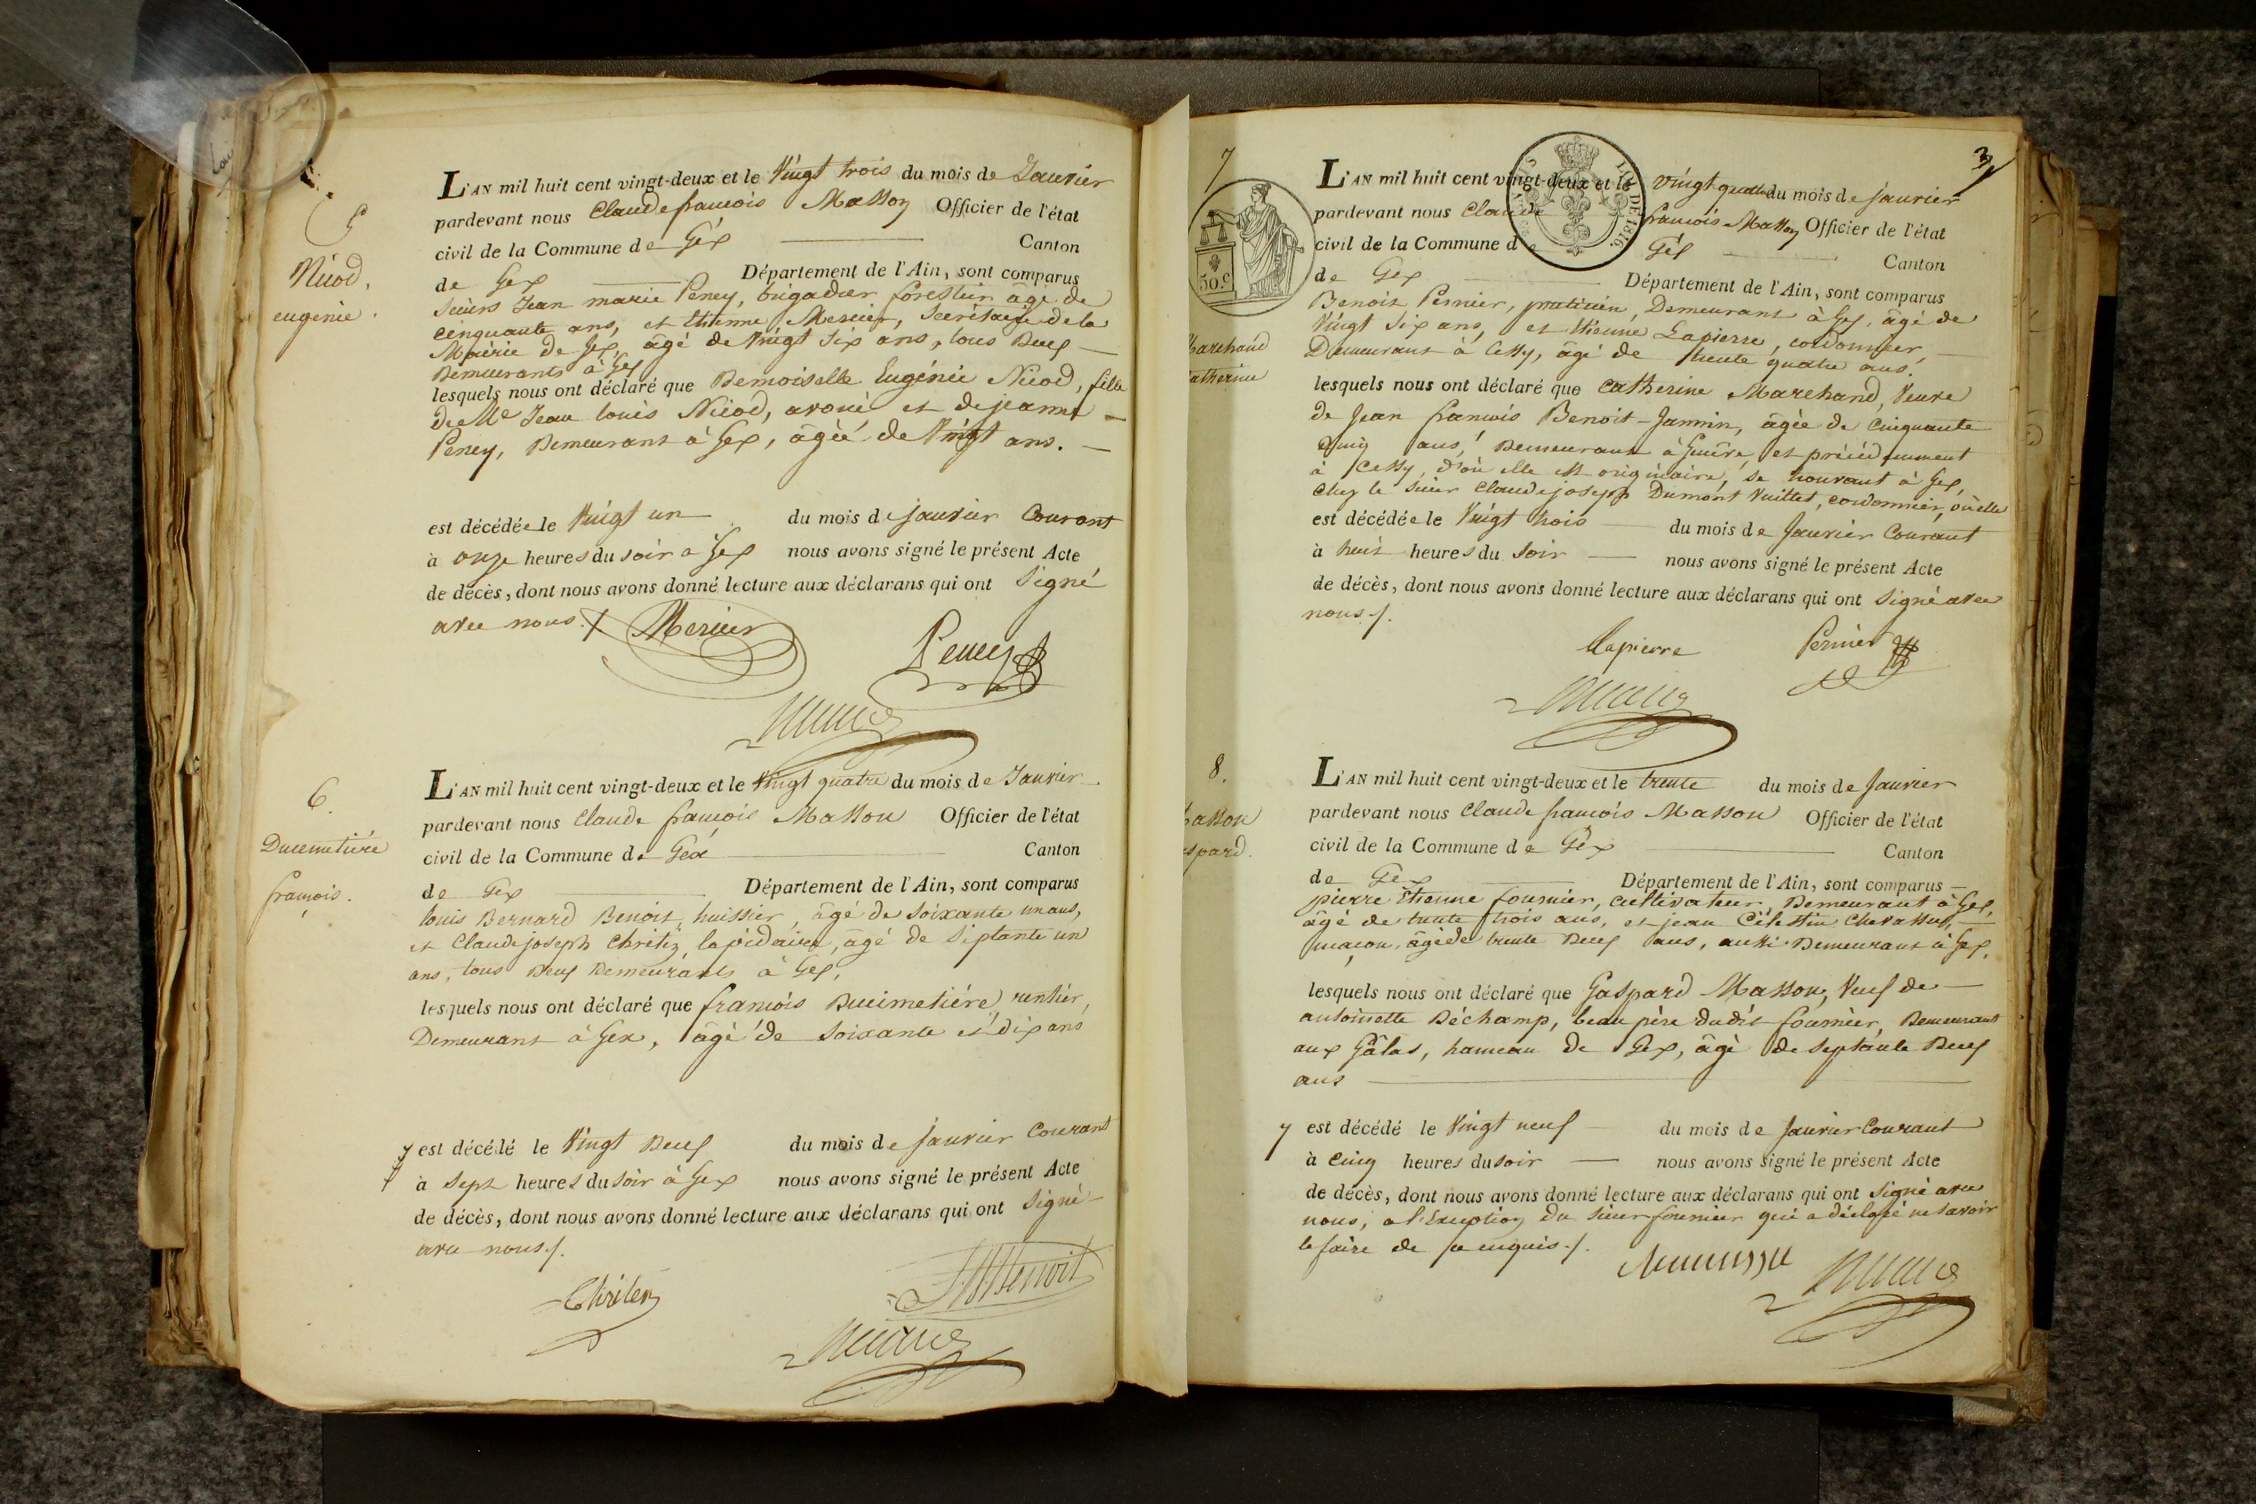 5
Nicod,
eugénie.
L'AN mil huit cent vingt-deux et le Vingt trois du mois de Janvier
pardevant nous Claude françois Masson Officier de l'état
civil de la Commune de Gex Canton
de Gex Département de l'Ain, sont comparus
sieurs Jean marie Peney, brigadier forestier âgé de
cinquante ans, et Etienne Mercier, Secrétaire de la
Mairie de Gex, âgé de Vingt Six ans, tous Deux
Demeurants à Gex
lesquels nous ont déclaré que Demoiselle Eugénie Nicod, fille
de Me Jean louis Nicod, avoué et de jeanne
Peney, Demeurant à Gex, âgée de Vingt ans.
est décédée le Vingt un du mois de janvier Courant
à onze heures du soir à Gex nous avons signé le présent Acte
de décès, dont nous avons donné lecture aux déclarans qui ont Signé
avec nous./. Mercier
Peney
6.
Ducimetière
françois.
L'AN mil huit cent vingt-deux et le Vingt quatre du mois de Janvier
pardevant nous Claude françois Masson Officier de l'état
civil de la Commune de Gex Canton
de Gex Département de l'Ain, sont comparus
louis Bernard Benoit, huissier, âgé de Soixante un ans,
et Claude joseph Chriten, lapidaire, âgé de Septante un
ans, tous Deux Demeurants à Gex,
lesquels nous ont déclaré que françois Ducimetière, rentier,
Demeurant à Gex, âgé de Soixante et dix ans
y est décédé le Vingt Deux du mois de janvier Courant
à sept heures du soir à Gex nous avons signé le présent Acte
de décès, dont nous avons donné lecture aux déclarans qui ont Signé
avec nous./.
Chriten
Benoit
3
7
50 c
LOI DE 1816.
Marchand
Catherine
L'AN mil huit cent vingt-deux et le Vingt quatre du mois de janvier
pardevant nous Claude françois Masson Officier de l'état
civil de la Commune d Gex Canton
de Gex Département de l'Ain, sont comparus
Benoit Pernier, praticien, Demeurant à Gex, âgé de
Vingt Six ans, et Etienne Lapierre, cordonnier,
Demeurant à Cessy, âgé de trente quatre ans.
lesquels nous ont déclaré que Catherine Marchand, Veuve
de Jean françois Benoit-Jannin, âgée de Cinquante
Cinq ans, Demeurant à et précédemment
à Cessy, d'où elle est originaire, se trouvant à Gex,
Chez le Sieur Claude joseph Dumont Vuittet, cordonnier, où elle
est décédée le Vingt trois du mois de Janvier Courant
à huit heures du Soir nous avons signé le présent Acte
de décès, dont nous avons donné lecture aux déclarans qui ont Signé avec
nous./.
Lapierre Pernier
8.
Masson
Gaspard.
L'AN mil huit cent vingt-deux et le trente du mois de Janvier
pardevant nous Claude françois Masson Officier de l'état
civil de la Commune de Gex Canton
de Gex Département de l'Ain, sont comparus
pierre Etienne fournier, cultivateur, Demeurant à Gex,
âgé de trente trois ans, et jean Célestin Chevassus,
maçon, âgé de trente Deux ans, aussi Demeurant à Gex,
lesquels nous ont déclaré que Gaspard Masson, Veuf de
antoinette Déchamp, beau père dudit fournier, Demeurant
aux Gâlas, hameau de Gex, âgé de septante Deux
ans
y est décédé le Vingt neuf du mois de Janvier Courant
à Cinq heures du soir nous avons signé le présent Acte
de décès, dont nous avons donné lecture aux déclarans qui ont Signé avec
nous, a l'Exception du Sieur fournier qui a déclaré ne savoir
le faire de ce enquis./.